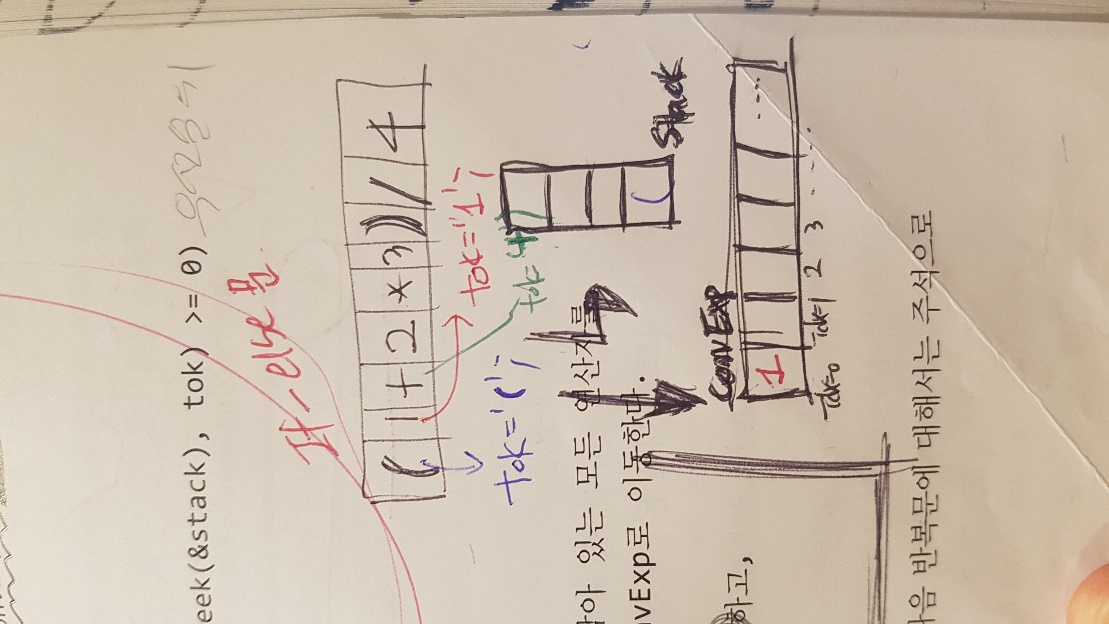 eek(&stack), tok) >= 0)
if-else 문
( 1 + 2 * 3 ) / 4
tok='('; tok='1';
Stack
(
남아 있는 모든 연산자를
nvExp로 이동한다.
ConvExp
1 ...
idx=0 idx=1 2 3 ....
하고,
다음 반복문에 대해서는 주석으로